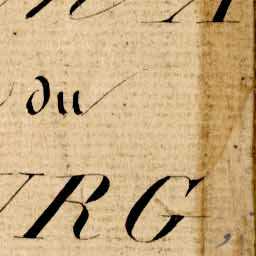 du
URG,